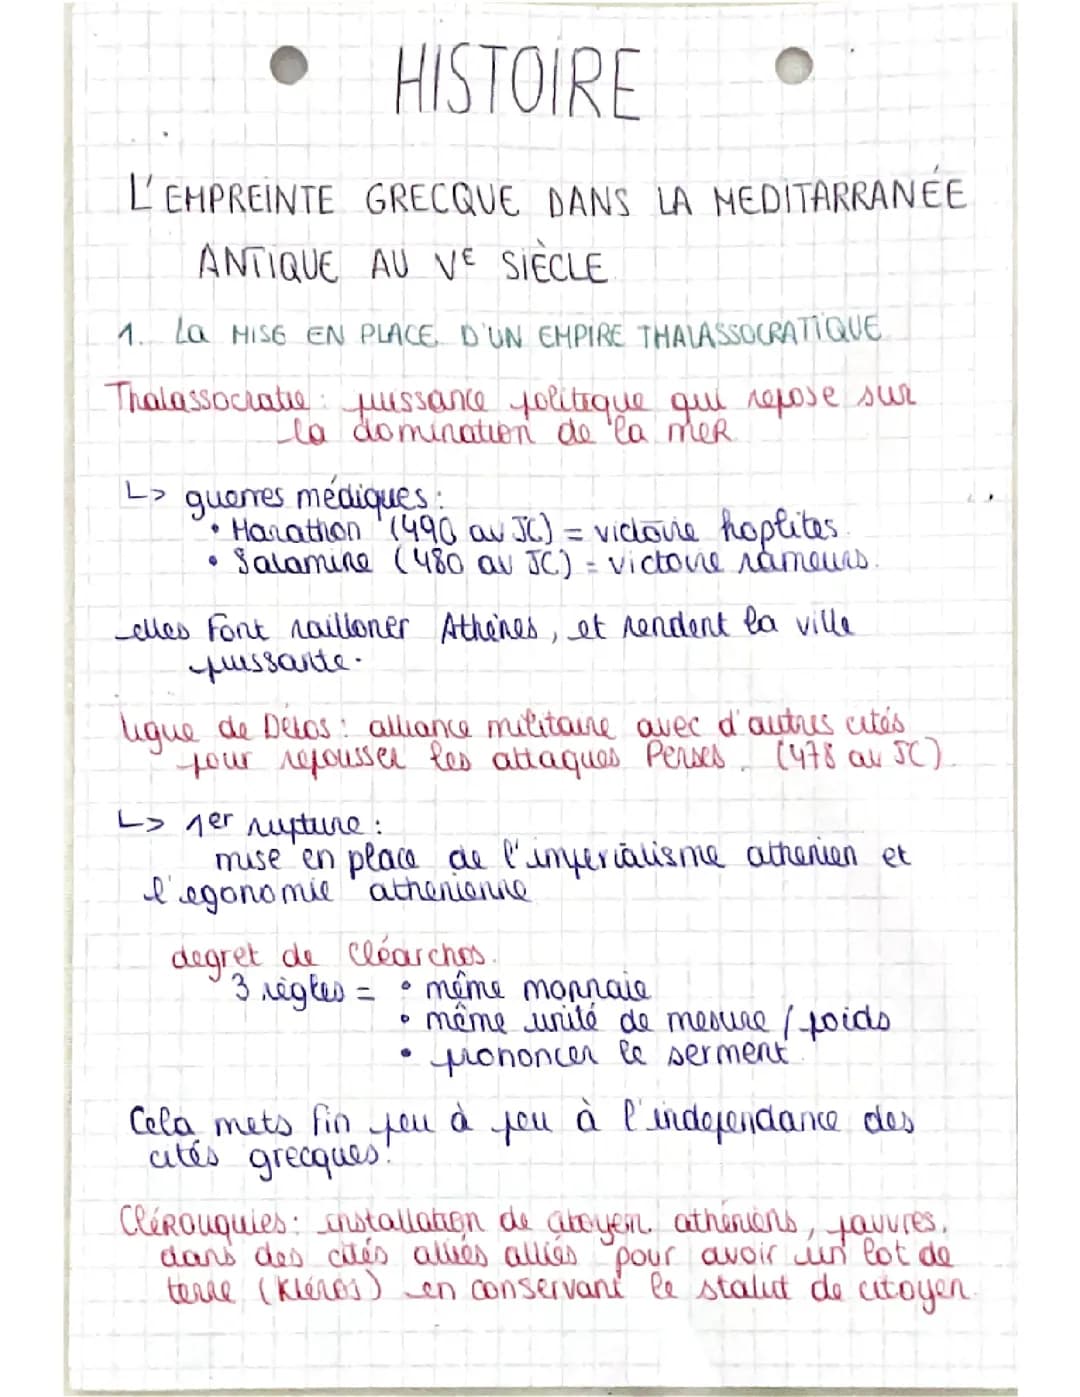 HISTOIRE
L'EMPREINTE GRECQUE DANS LA MEDITARRANÉE
ANTIQUE AU VE SIÈCLE
1. La MISE EN PLACE D'UN EMPIRE THALASSOCRATIQUE
Thalassocratie : puissance politique qui repose sur
la domination de la mer
↳ guerres médiques :
• Marathon (490 av JC) = victoire hoplites.
• Salamine (480 av JC) = victoire rameurs.
elles font railloner Athènes, et rendent la ville
puissante.
ligue de Délos : alliance militaire avec d'autres cités
pour repousser les attaques Perses. (478 av JC).
↳ 1er rupture :
mise en place de l'imperialisme athenien et
l'egonomie athenienne
degret de Cléarchos.
3 règles = • même monnaie
• même unité de mesure / poids
• prononcer le serment.
Cela mets fin peu à peu à l'independance des
cités grecques.
Clérouquies : installation de citoyen athéniens, pauvres,
dans des cités alliés alliés pour avoir un lot de
terre (Kléros) en conservant le statut de citoyen.